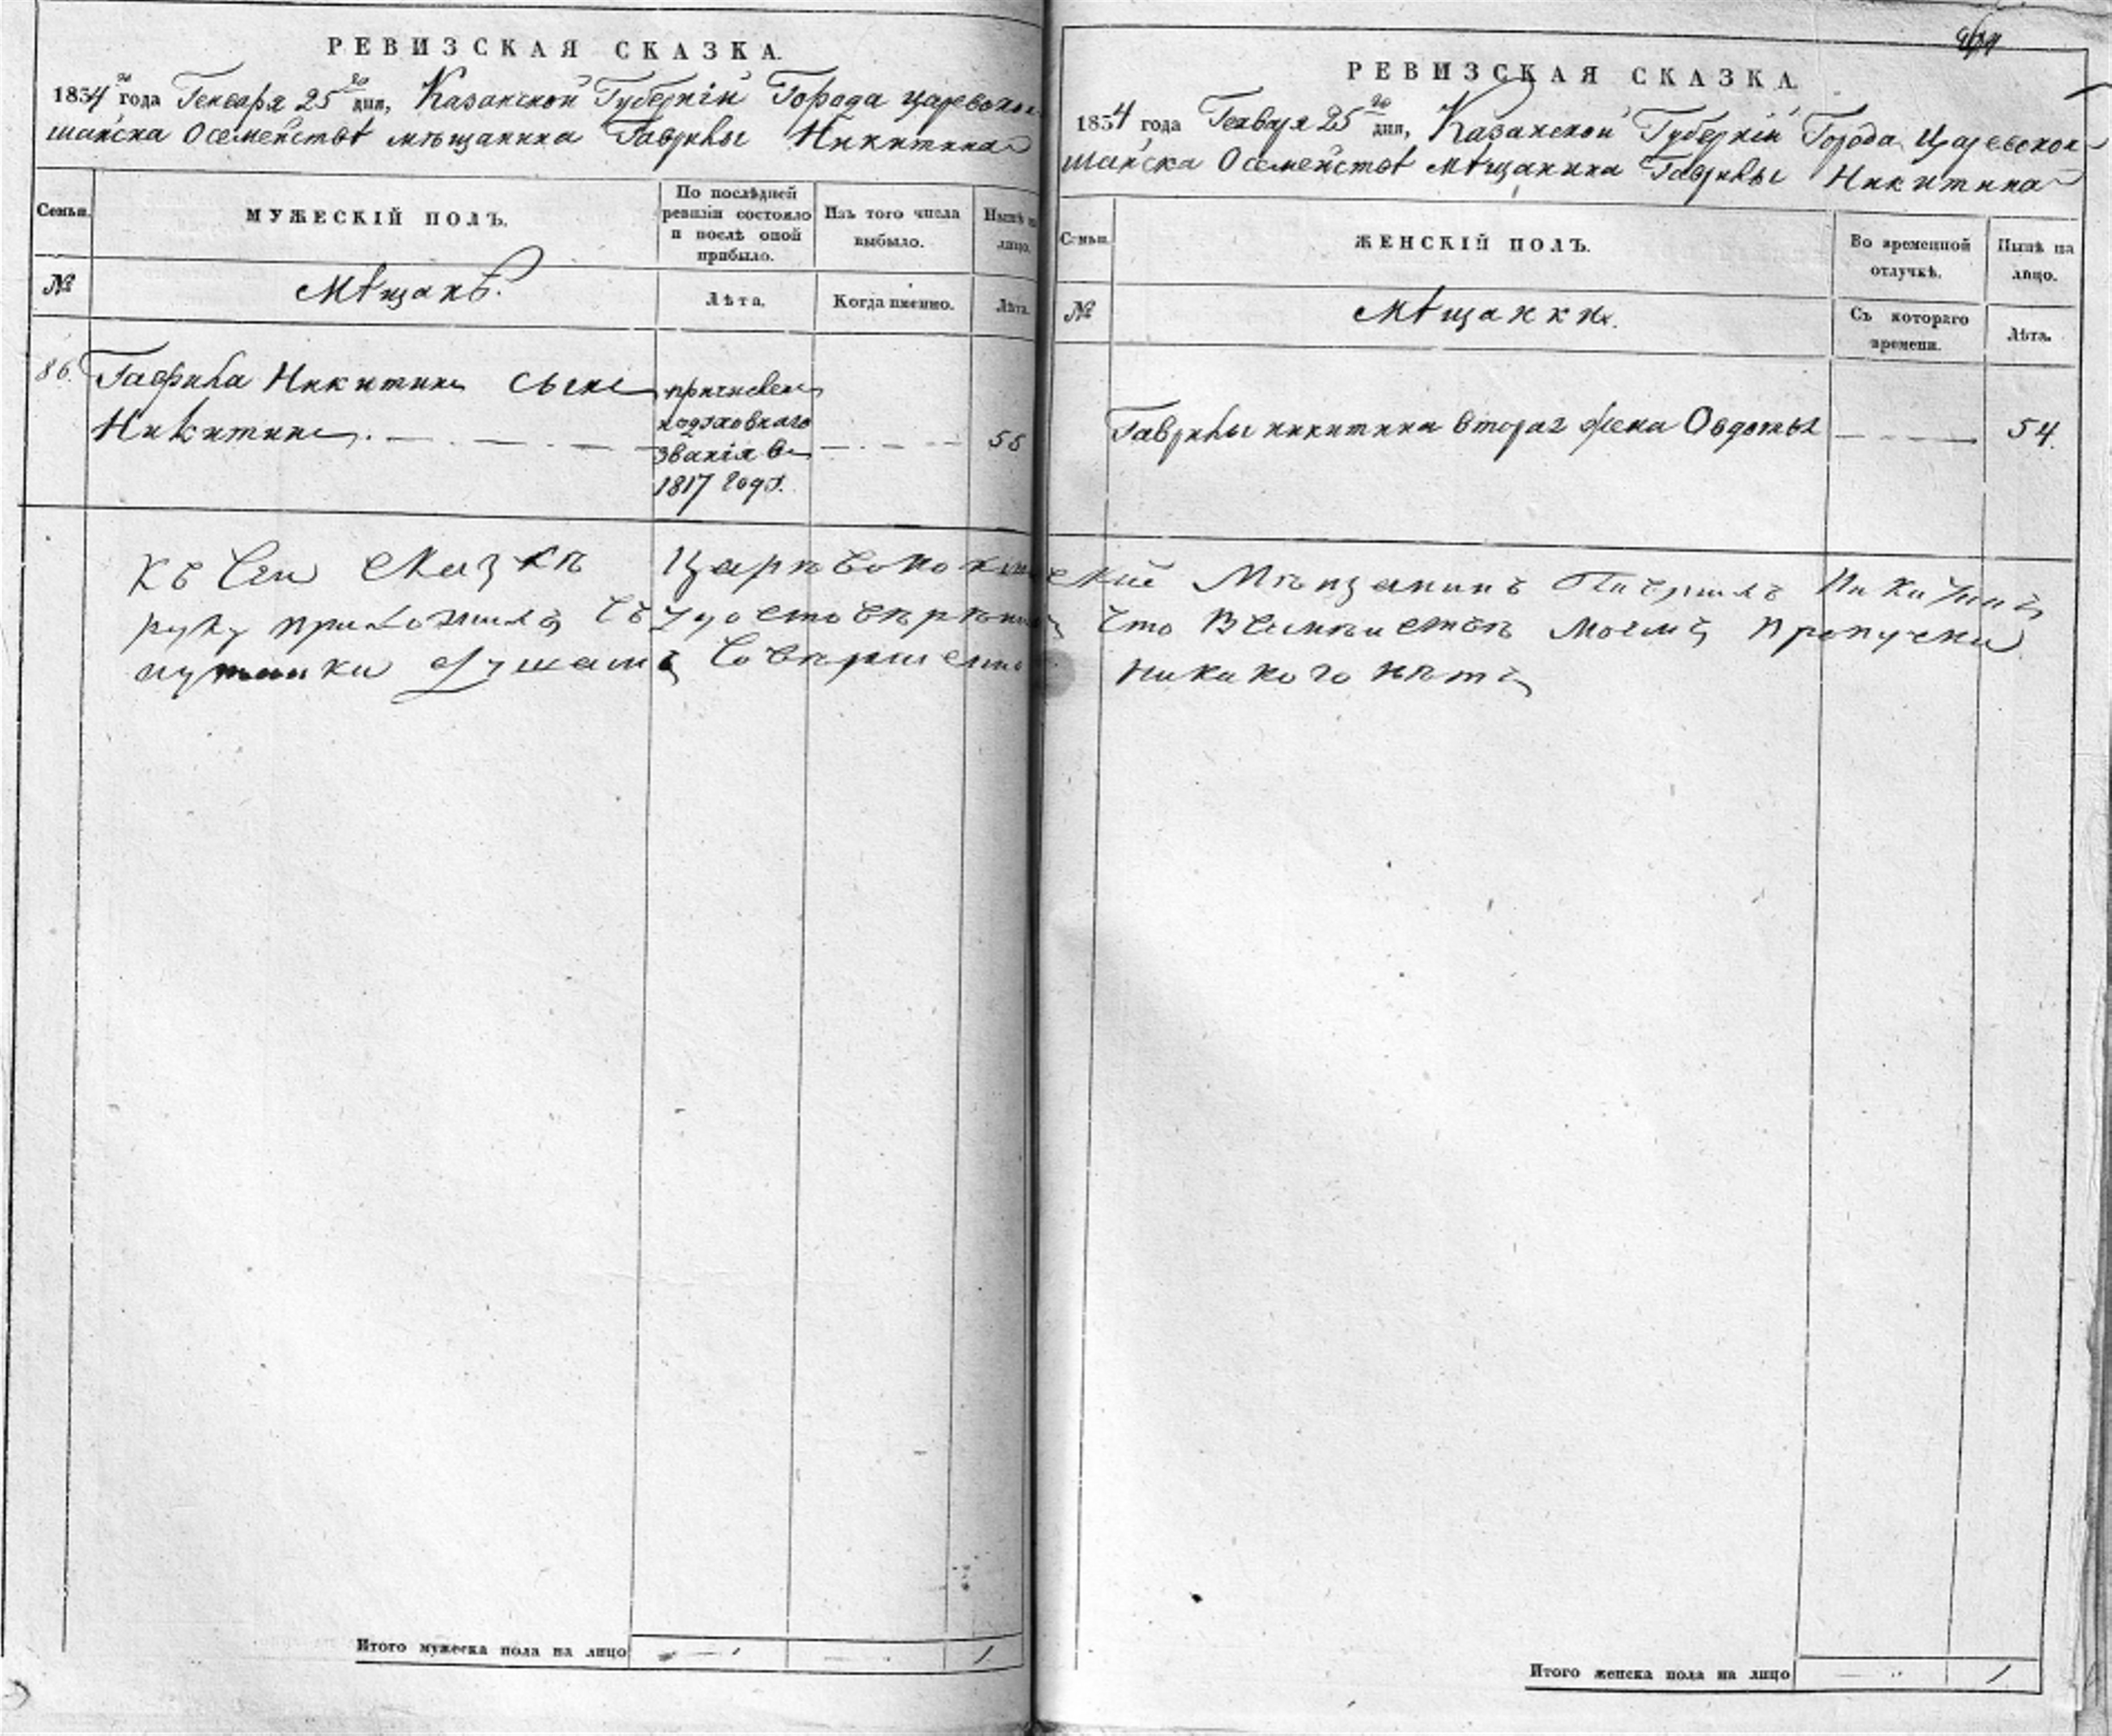 РЕВИЗСКАЯ СКАЗКА.
1854 го года Генваря 25 го дня, Казанской Губерніи Города Царевокок-
шайска О семействѣ мѣщанина Гаврилы Никитина
Семьи.
МУЖЕСКІЙ ПОЛЪ.
По послѣдней
ревизіи состояло
и послѣ оной
прибыло.
Изъ того числа
выбыло.
Нынѣ на
лицо.
№
Мѣщанъ.
Лѣта.
Когда именно.
Лѣта.
86.
Гаврила Никитинъ сынъ
Никитинъ.
причисленъ
из духовнаго
званія въ
1817 годѣ.
58
Къ сей сказкѣ Царевококшайскій Мѣщанинъ Гаврилъ Никитинъ
руку приложилъ съ удостовѣренiемъ Что В семѣистве Моемъ пропуска
душамъ Совершенно никакого нѣтъ
Итого мужеска пола на лицо
1
РЕВИЗСКАЯ СКАЗКА.
1854 года Генваря 25 го дня, Казанской Губерніи Города Царевокок-
шайска О семействѣ Мѣщанина Гаврилы Никитина
Семьи.
ЖЕНСКІЙ ПОЛЪ.
Во временной
отлучкѣ.
Нынѣ на
лицо.
№
Мѣщанки.
Съ котораго
времени.
Лѣта.
Гаврилы никитина вторая жена Овдотья
54.
Итого женска пола на лицо
1